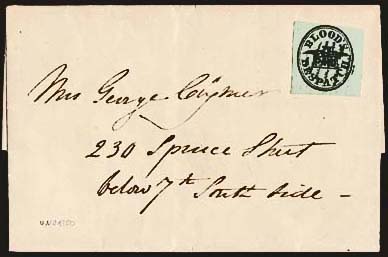 BLOOD'S
DESPATCH
Mrs George Clymer
230 Spruce Street
below 7th South side -